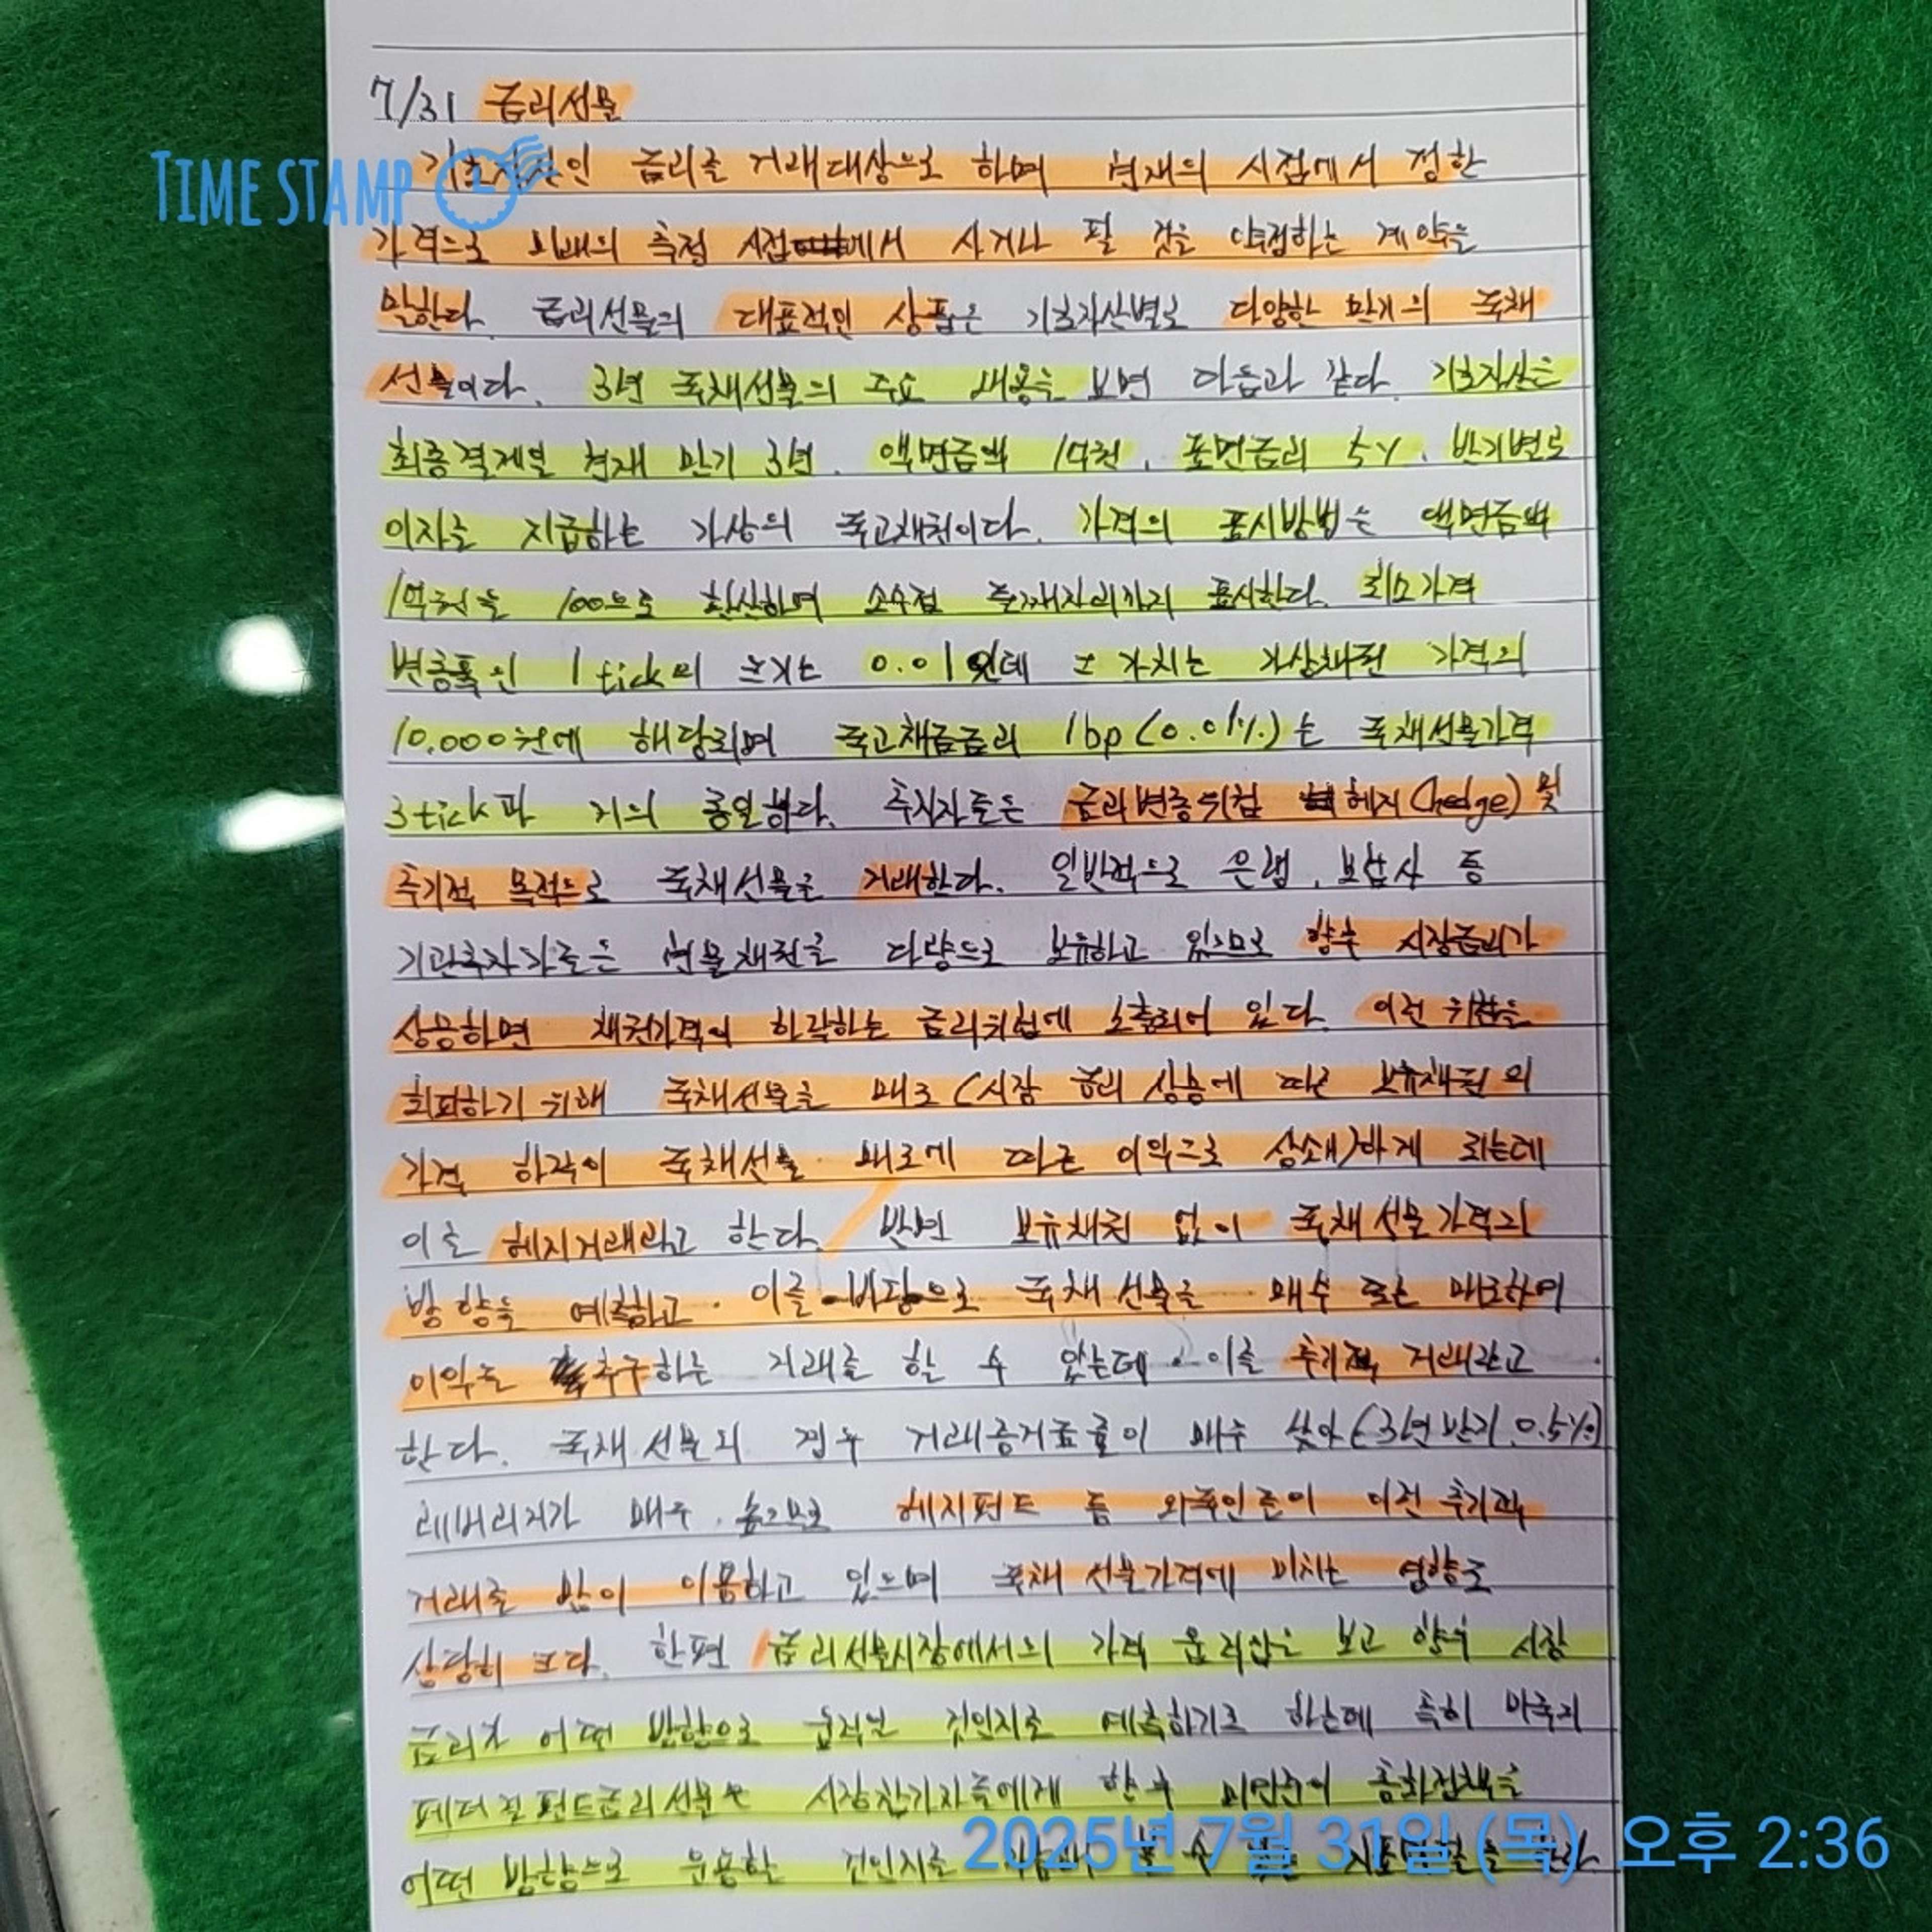 7/31 금리선물
TIME STAMP
인 금리를 거래대상으로 하며 현재의 시점에서 정한
가격으로 미래의 특정 시점에서 사거나 팔 것을 약정하는 계약을
말한다. 금리선물의 대표적인 상품은 기초자산별로 다양한 만기의 국채
선물이다. 3년 국채선물의 주요 내용을 보면 다음과 같다. 기초자산은
최종결제일 현재 만기 3년, 액면금액 1억원, 표면금리 5%, 반기별로
이자를 지급하는 가상의 국고채권이다. 가격의 표시방법은 액면금액
1억원을 100으로 환산하며 소수점 둘째자리까지 표시한다. 최소가격
변동폭인 1 tick의 크기는 0.01인데 그 가치는 가상채권 가격의
10,000원에 해당되며 국고채금리 1bp(0.01%)는 국채선물가격
3tick과 거의 동일하다. 투자자들은 금리변동위험 헤지(hedge) 및
투기적 목적으로 국채선물을 거래한다. 일반적으로 은행, 보험사 등
기관투자가들은 현물채권을 다량으로 보유하고 있으므로 향후 시장금리가
상승하면 채권가격이 하락하는 금리위험에 노출되어 있다. 이런 위험을
회피하기 위해 국채선물을 매도(시장 금리 상승에 따른 보유채권의
가격 하락이 국채선물 매도에 따른 이익으로 상쇄)하게 되는데
이를 헤지거래라고 한다. 반면 보유채권 없이 국채선물가격의
방향을 예측하고 이를 바탕으로 국채선물을 매수 또는 매도하여
이익을 추구하는 거래를 할 수 있는데 이를 투기적 거래라고
한다. 국채선물의 경우 거래증거금률이 매우 낮아(3년 만기 0.5%)
레버리지가 매우 높으므로 헤지펀드 등 외국인들이 이런 투기적
거래를 많이 이용하고 있으며 국채선물가격에 미치는 영향도
상당히 크다. 한편 금리선물시장에서의 가격 움직임을 보고 향후 시장
금리가 어떤 방향으로 움직일 것인지를 예측하기도 하는데 특히 미국의
페더럴펀드금리선물은 시장참가자들에게 향후 미연준이 통화정책을
어떤 방향으로 운용할 것인지를
2025년 7월 31일 (목) 오후 2:36